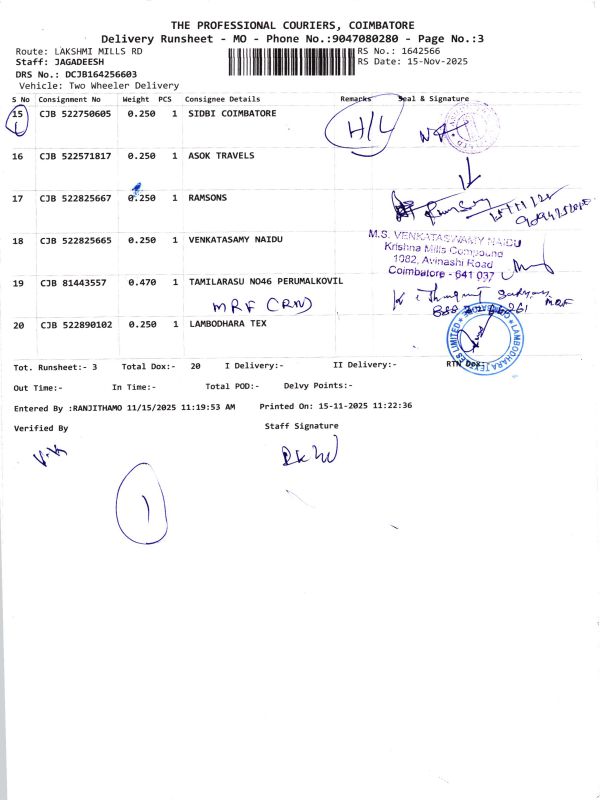 THE PROFESSIONAL COURIERS, COIMBATORE
Delivery Runsheet - MO - Phone No.:9047080280 - Page No.:3
Route: LAKSHMI MILLS RD
RS No.: 1642566
Staff: JAGADEESH
RS Date: 15-Nov-2025
DRS No.: DCJB164256603
Vehicle: Two Wheeler Delivery
S No Consignment No Weight PCS Consignee Details Remarks Seal & Signature
15 CJB 522750605 0.250 1 SIDBI COIMBATORE H/L
16 CJB 522571817 0.250 1 ASOK TRAVELS
17 CJB 522825667 0.250 1 RAMSONS
18 CJB 522825665 0.250 1 VENKATASAMY NAIDU
M.S. VENKATASWAMY NAIDU
Krishna Mills Compound
1082, Avinashi Road
Coimbatore - 641 037
19 CJB 81443557 0.470 1 TAMILARASU NO46 PERUMALKOVIL
MRF (RN)
MRF
20 CJB 522890102 0.250 1 LAMBODHARA TEX
LAMBODHARA TEXTILES LIMITED
Tot. Runsheet:- 3 Total Dox:- 20 I Delivery:- II Delivery:- RTN Dox:-
Out Time:- In Time:- Total POD:- Delvy Points:-
Entered By :RANJITHAMO 11/15/2025 11:19:53 AM Printed On: 15-11-2025 11:22:36
Verified By Staff Signature
V.K
1